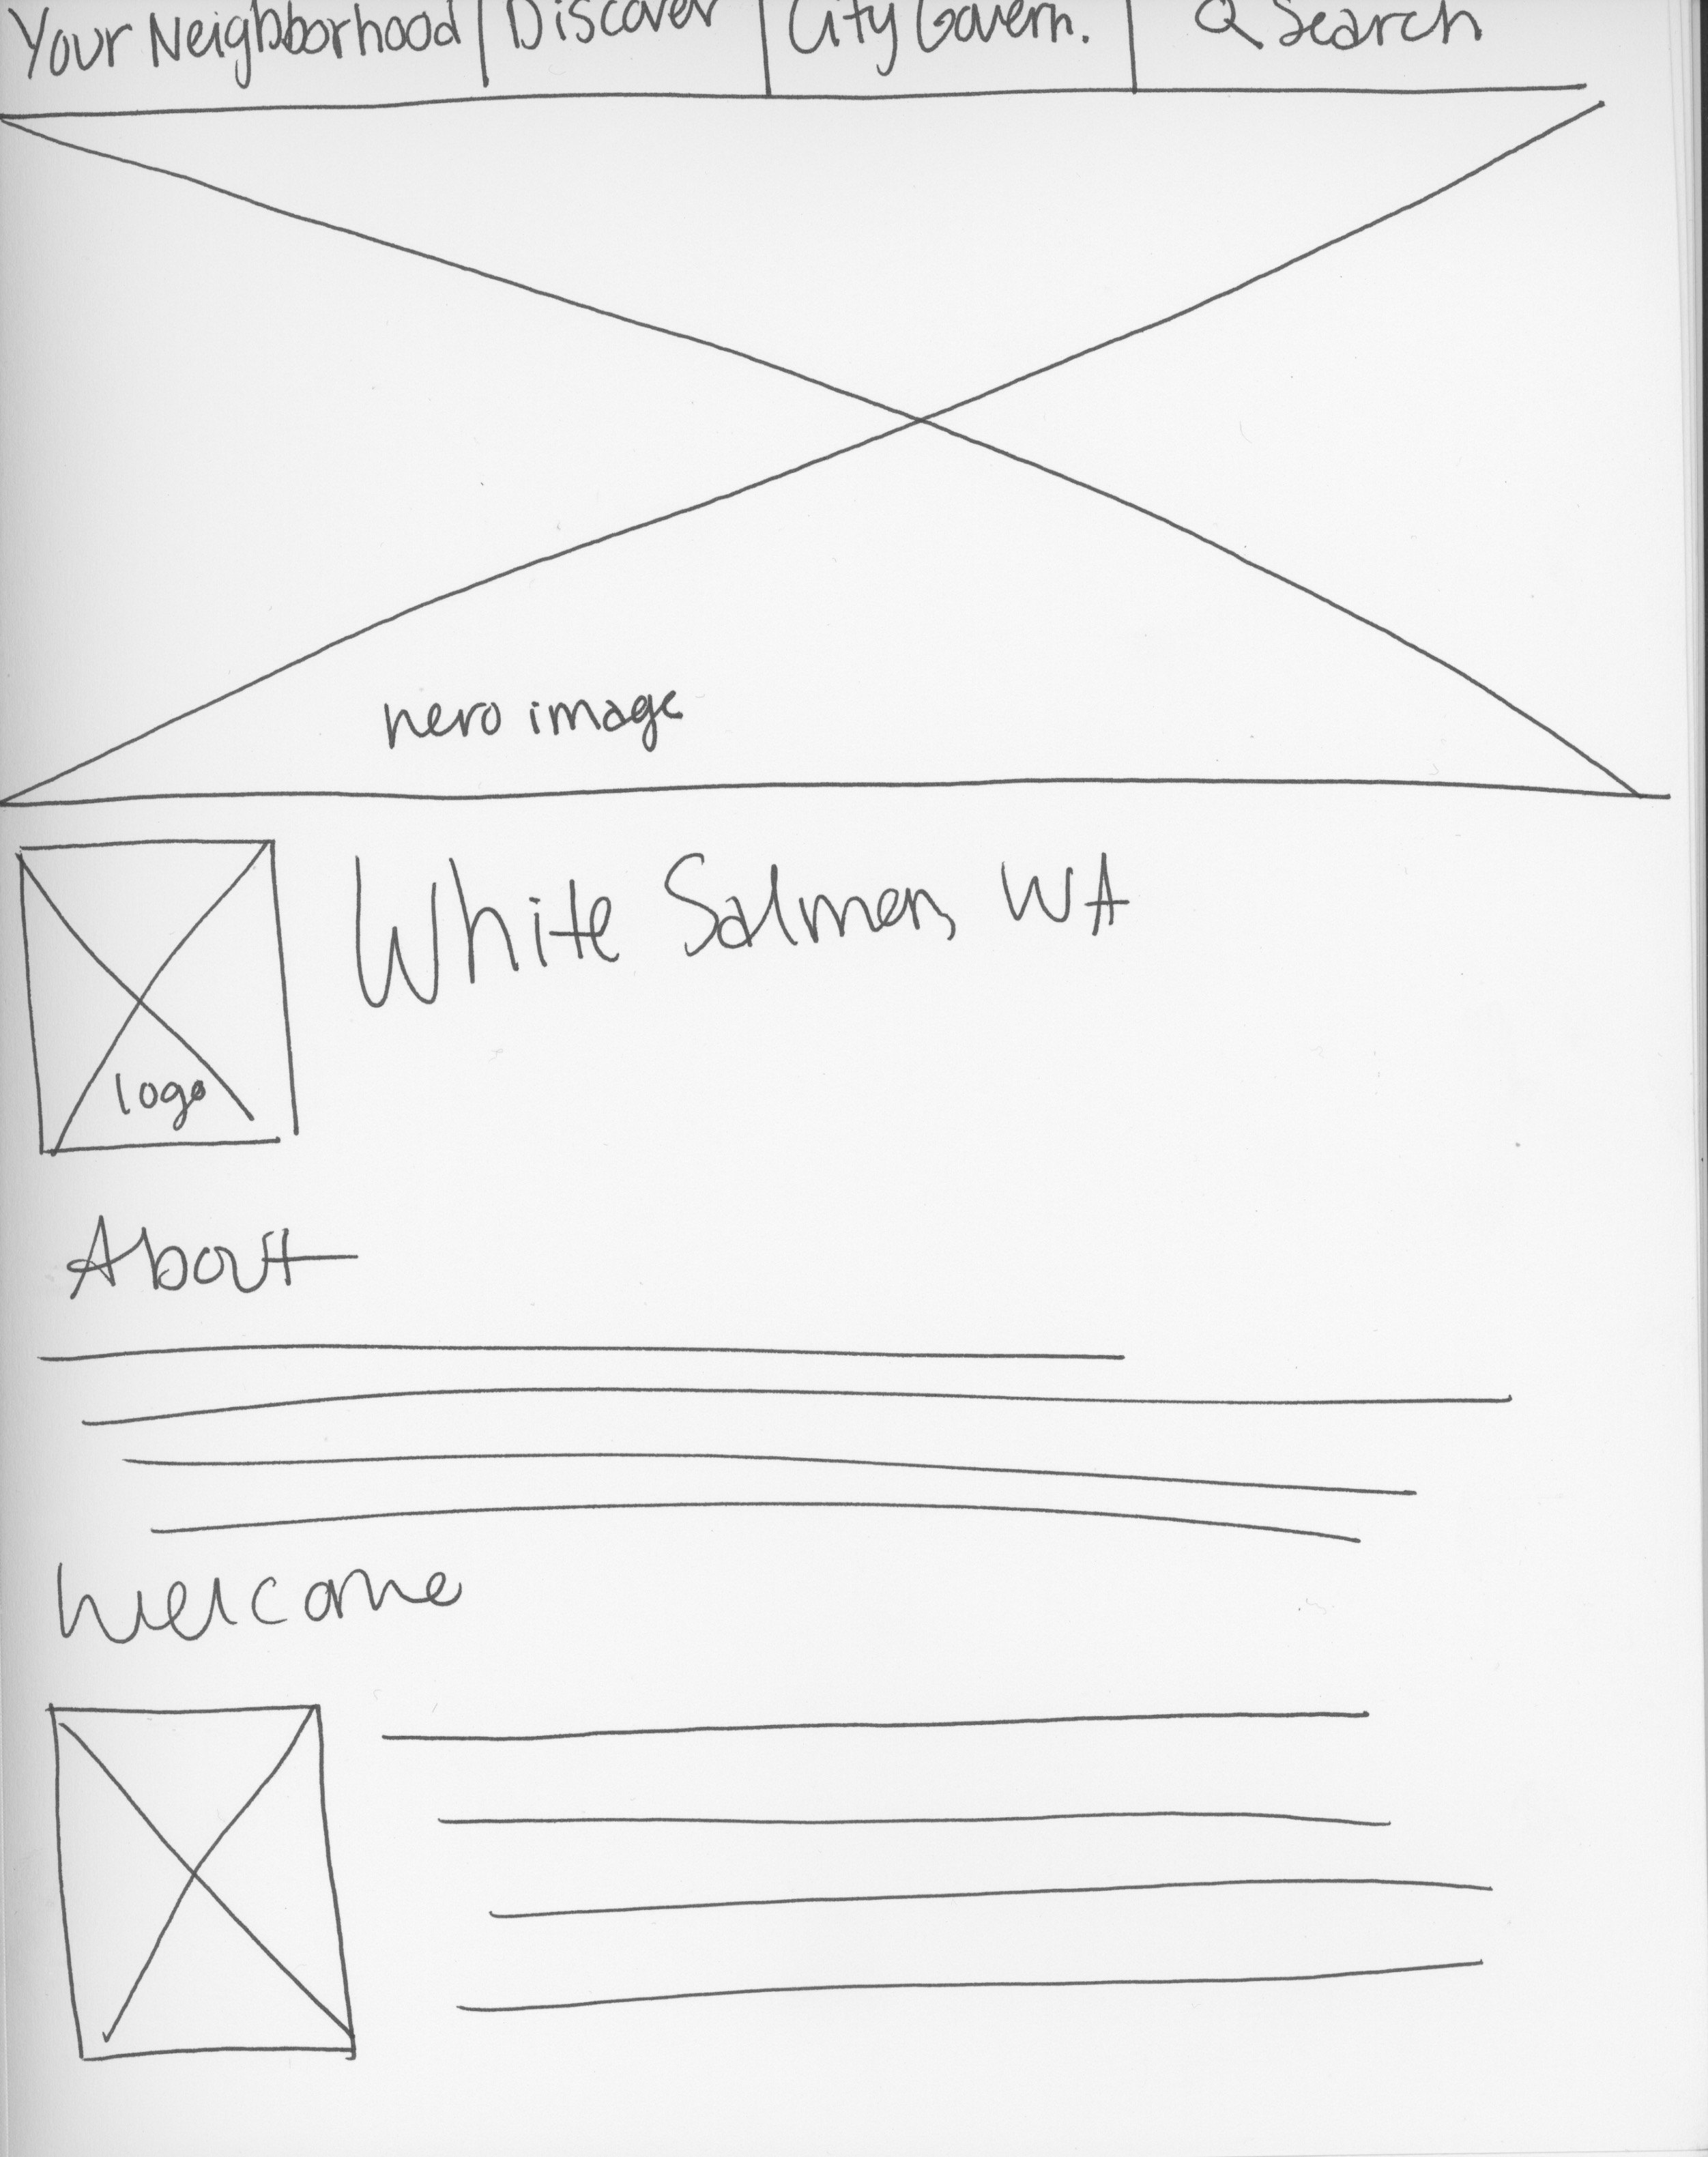 Your Neighborhood | Discover | City Govern. | Search
hero image
White Salmon, WA
logo
About
Welcome